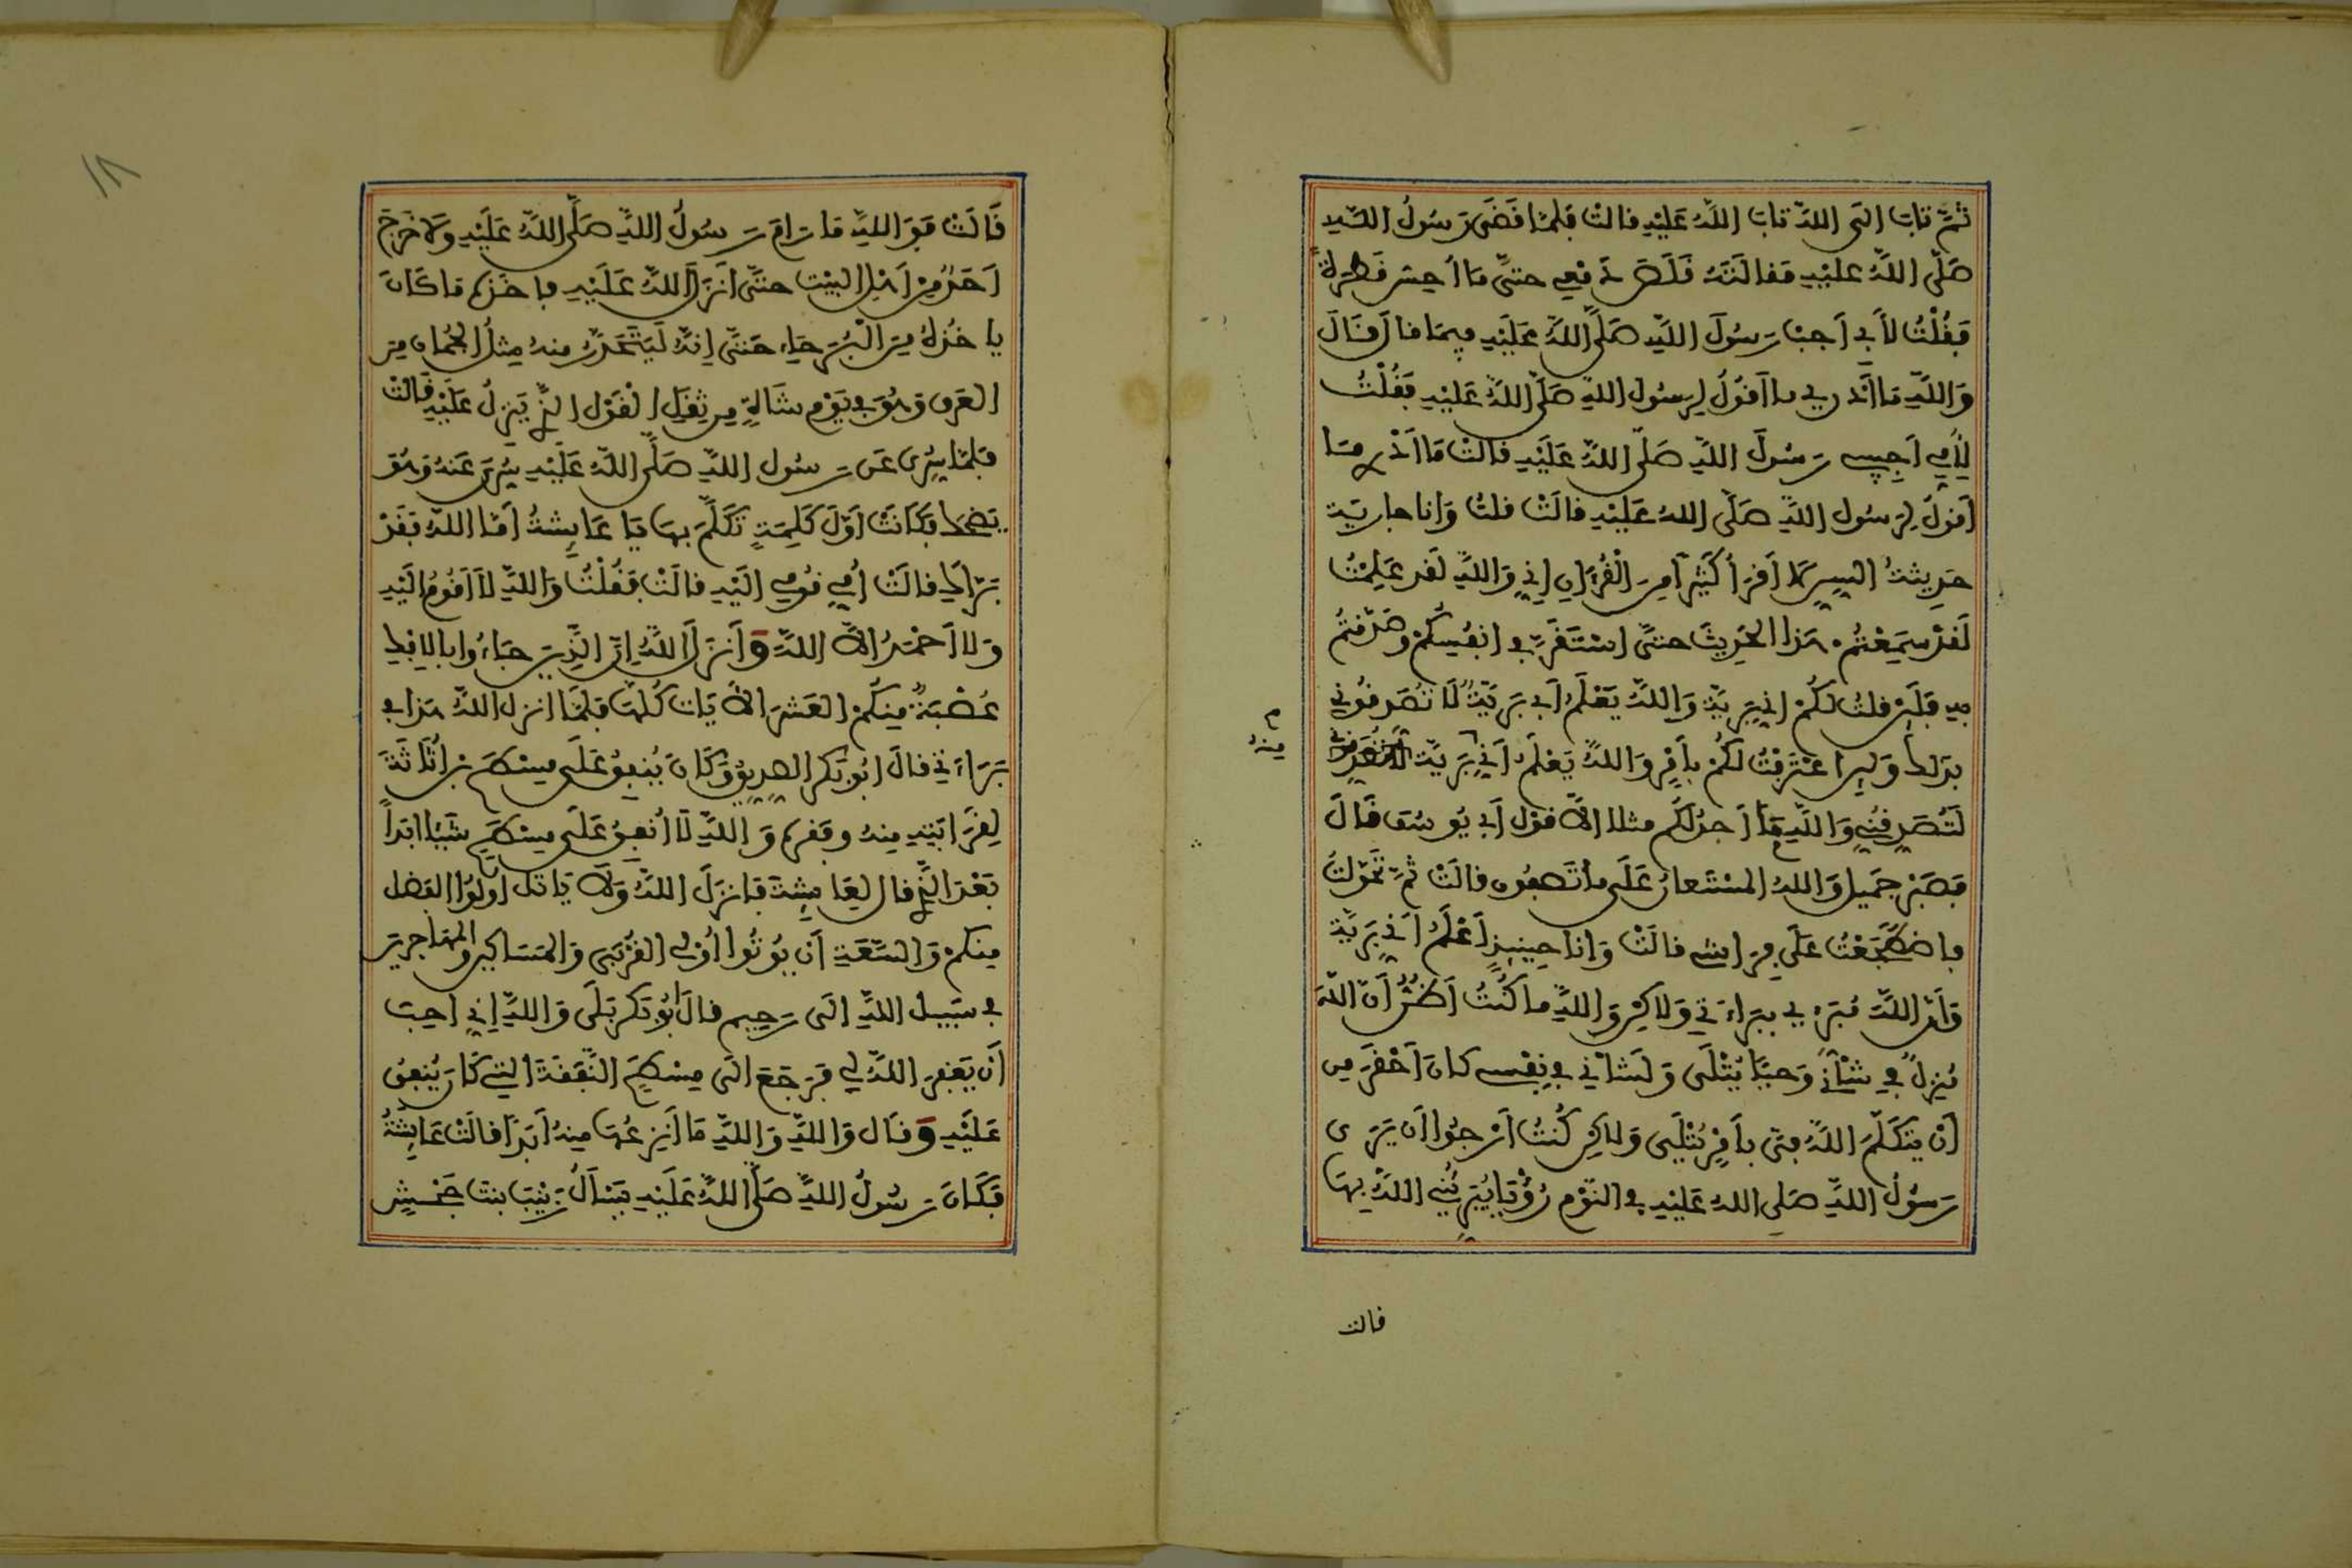 ثُمَّ تَابَ اِلَى اللَّهِ تَابَ اللَّهُ عَلَيْهِ قالتْ فلمَّا قَضَى رَسُولُ اللَّهِ
صَلَّى اللَّهُ عليْهِ مَقالَتَهُ قَلَصَ دَمْعِي حتَّى مَا اُحِسُّ قَطْرَةً
فَقُلْتُ لِأَبِي أَجِبْ رَسُولَ اللَّهِ صَلَّى اللَّهُ عَلَيْهِ فِيمَا قال قَالَ
وَاللَّهِ مَا أَدْرِي ما أَقُولُ لِرَسُولِ اللَّهِ صَلَّى اللَّهُ عَلَيْهِ فَقُلْتُ
لِأُمِّي أَجِيبِي رَسُولَ اللَّهِ صَلَّى اللَّهُ عَلَيْهِ قالتْ مَا أَدْرِي مَا
أَقولُ لِرَسُولِ اللَّهِ صَلَّى اللهُ عَلَيْهِ قالَتْ قلتُ وَأنا جارِيَة
حَدِيثةُ السِّنِّ لا أَقْرَأُ كَثِيراً مِنَ الْقُرْءَانِ إِنِّي وَاللَّهِ لَقد عَلِمْتُ
لَقَدْ سَمِعْتُمْ هَذا الحَدِيثَ حتَّى اسْتَقَرَّ في أنفُسِكُمْ وصَدَّقْتُمْ
بِهِ فَلَئِنْ قلتُ لَكُمْ إِنِّي بَرِيَّة وَاللَّهُ يَعْلَمُ أَنِّي بَرِيَّةٌ لَا تُصَدِّقُونِي
بِذَلِكَ وَلَئِنِ اعْتَرَفْتُ لَكُمْ بِأَمْرٍ وَاللَّهُ يَعْلَمُ أَنِّي بَرِيَّة
م
مِنْهُ
لَتُصَدِّقُنِّي وَاللَّهِ مَا أَجِدُ لَكُم مثلا إِلَّا قول أَبِي يُوسُفَ قَالَ
فَصَبْرٌ جَمِيل وَاللهُ الْمُسْتَعانُ عَلَى ما تَصِفُون قالَتْ ثُمَّ تَحَوَّلْتُ
فاضْطَجَعْتُ عَلَى فِرَاشِي قالَتْ وَأنا حِينَئِذٍ أَعْلَمُ أَنِّي بَرِيَّة
وَأَنَّ اللَّهَ مُبَرِّءِي بِبَرَاءَتِي وَلَاكِنْ وَاللَّهِ ما كُنْتُ أَظُنُّ أَنَّ اللَّهَ
مُنزِلٌ فِي شَأْنِي وَحْياً يُتْلَى وَلَشَأْنِي فِي نَفْسِي كانَ أَحْقَرَ مِن
أَنْ يتَكَلَّمَ اللَّهُ فِيَّ بِأَمْرٍ يُتْلَى وَلاكِنْ كُنْتُ أَرْجُوا أَن يَرَى
رَسُولُ اللَّهِ صَلى اللهُ عَلَيْهِ فِي النَّوْمِ رُؤْيَا يُبَرِّئُنِي اللَّهُ بِهَا
قالت
١٨
قَالَتْ فَوَ اللَّهِ مَا رَامَ رَسُولُ اللَّهِ صَلَّى اللَّهُ عَلَيْهِ وَلَا خَرَجَ
أَحَدٌ مِنْ أَهْلِ البَيْتِ حتَّى أَنزَلَ اللَّهُ عَلَيْهِ فاخَذَهُ مَا كَانَ
ياخُذُهُ مِنَ الْبُرَحَاءِ حَتَّى إِنَّهُ لَيَتَحَدَّرُ مِنهُ مِثْلُ الجُمَانِ مِنَ
العَرَقِ وَهُوَ فِي يَوْمٍ شَاتٍ مِنْ ثِقَلِ الْقَوْلِ الَّذِي يَنزِلُ عَلَيْهِ قَالَتْ
فَلمَّا سُرِّىَ عَن رَسُولِ اللَّهِ صَلَّى اللَّهُ عَلَيْهِ سُرِّيَ عَنْهُ وَهُوَ
يَضْحَكُ فَكَانَتْ أَوَّلَ كَلِمَةٍ تَكَلَّمَ بِهَا يَا عَايِشَةُ أَمَّا اللَّهُ فَقَدْ
بَرَّأَكِ فَقالَتْ أُمِّي قُومِي إِلَيْهِ قالَتْ فَقُلْتُ وَاللَّهِ لَا أَقُومُ إِلَيْهِ
وَلا أَحْمَدُ إِلَّا اللَّهَ وَأَنزَلَ اللَّهُ إِنَّ الَّذِينَ جَاءُوا بالإِفْكِ
عُصْبَةٌ مِنكُمْ العَشْرَ الآيَاتِ كُلَّهَا فَلمَّا أنزل اللَّهُ هَذا فِي
بَرَاءَتِي قالَ أَبُو بَكْرٍ الصِّدِّيقُ وَكَانَ يُنفِقُ عَلَى مِسْطَحِ بْنِ أُثَاثَةَ
لِقَرَابَتِهِ مِنهُ وفَقرِهِ وَاللَّهِ لَا أُنفِقُ عَلَى مِسْطَحٍ شَيْئا أَبَداً
بَعْدَ الَّذِي قال لِعَايِشَةَ فَأَنزَلَ اللَّهُ وَلَا يَاتَلِ أُولُوا الفَضْلِ
مِنكمْ وَالسَّعَةِ أَنْ يُوتُوا أُوْلِي القُرْبَى وَالْمَسَاكِينَ وَالمهَاجِرِينَ
فِي سَبِيلِ اللَّهِ إِلَى رَحِيم قالَ أَبُو بَكْرٍ بَلَى وَاللَّهِ إِنِّي أُحِبُّ
أَنْ يَغْفِرَ اللَّهُ لِي فَرَجَعَ إِلَى مِسْطَحٍ النَّفَقَةَ الَّتِي كَانَ يُنفِقُ
عَلَيْهِ وَقَال وَاللَّهِ وَاللَّهِ مَا أَنزِعُهَا مِنهُ أَبَدًا قالَتْ عَايِشَةُ
فَكَانَ رَسُولُ اللَّهِ صَلَّى اللَّهُ عَلَيْهِ يَسْأَلُ زَيْنَبَ بنتَ جَحْشٍ